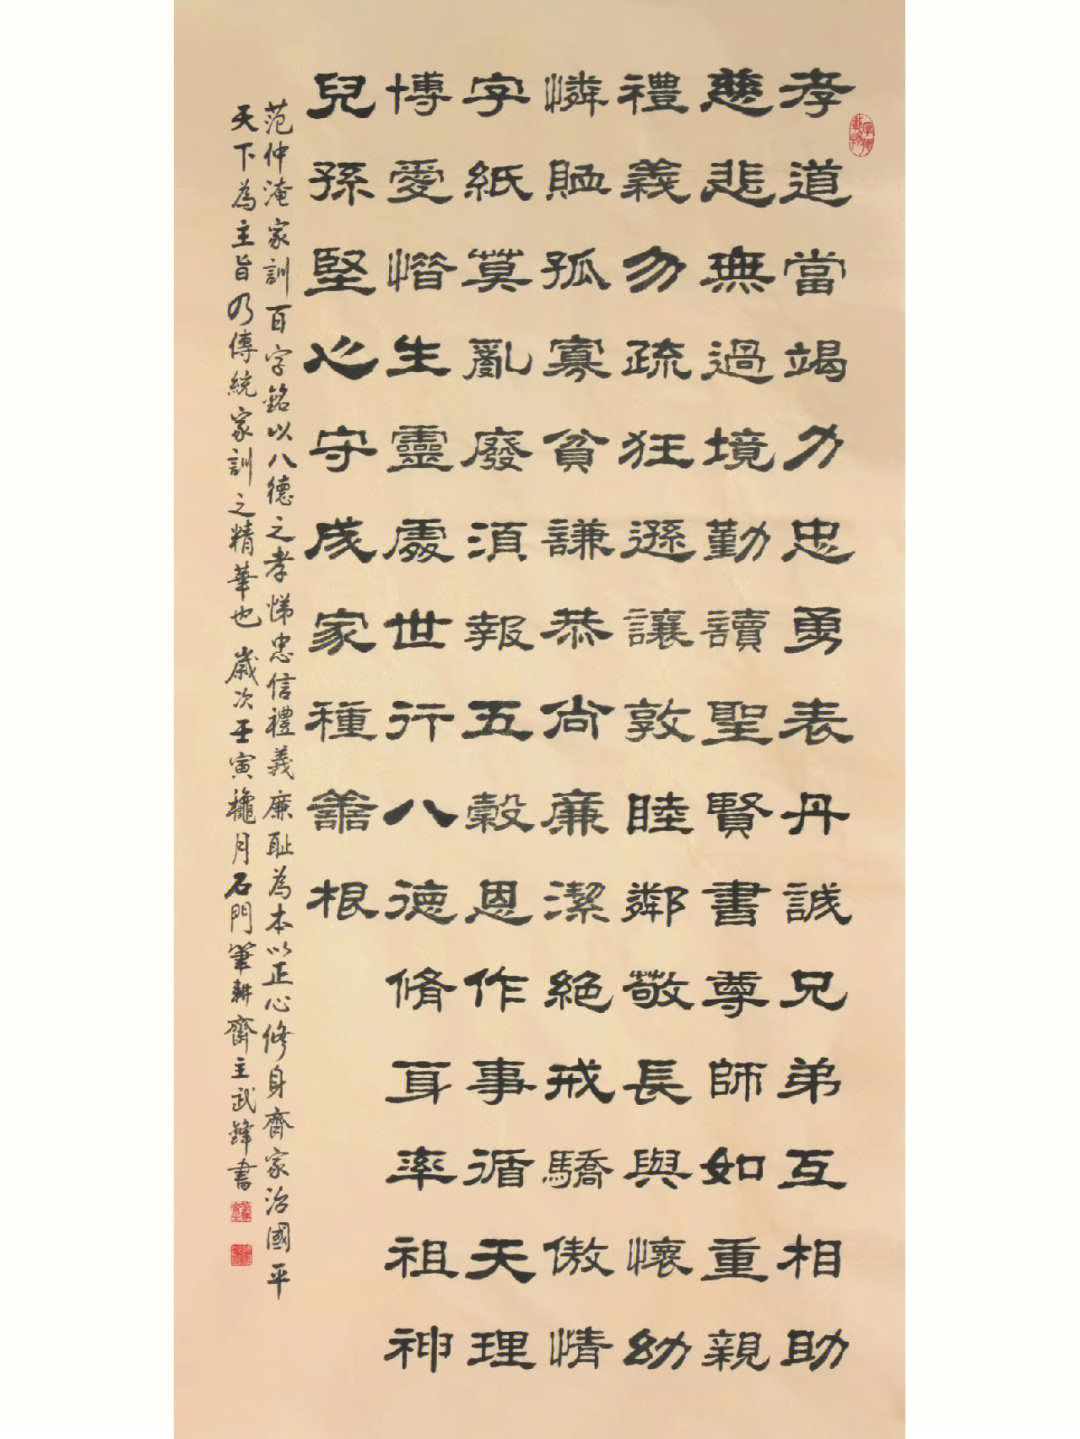 厚德載物
孝道當竭力忠勇表丹誠兄弟互相助
慈悲無過境勤讀聖賢書尊師如重親
禮義勿疏狂遜讓敦睦鄰敬長與懷幼
憐賉孤寡貧謙恭尚廉潔絕戒驕傲情
字紙莫亂廢須報五穀恩作事循天理
博愛惜生靈處世行八德脩身率祖神
兒孫堅心守成家種善根
范仲淹家訓百字銘以八德之孝悌忠信禮義廉耻為本以正心修身齊家治國平
天下為主旨乃傳統家訓之精華也 歲次壬寅龝月石門筆耕齋主武鋒書